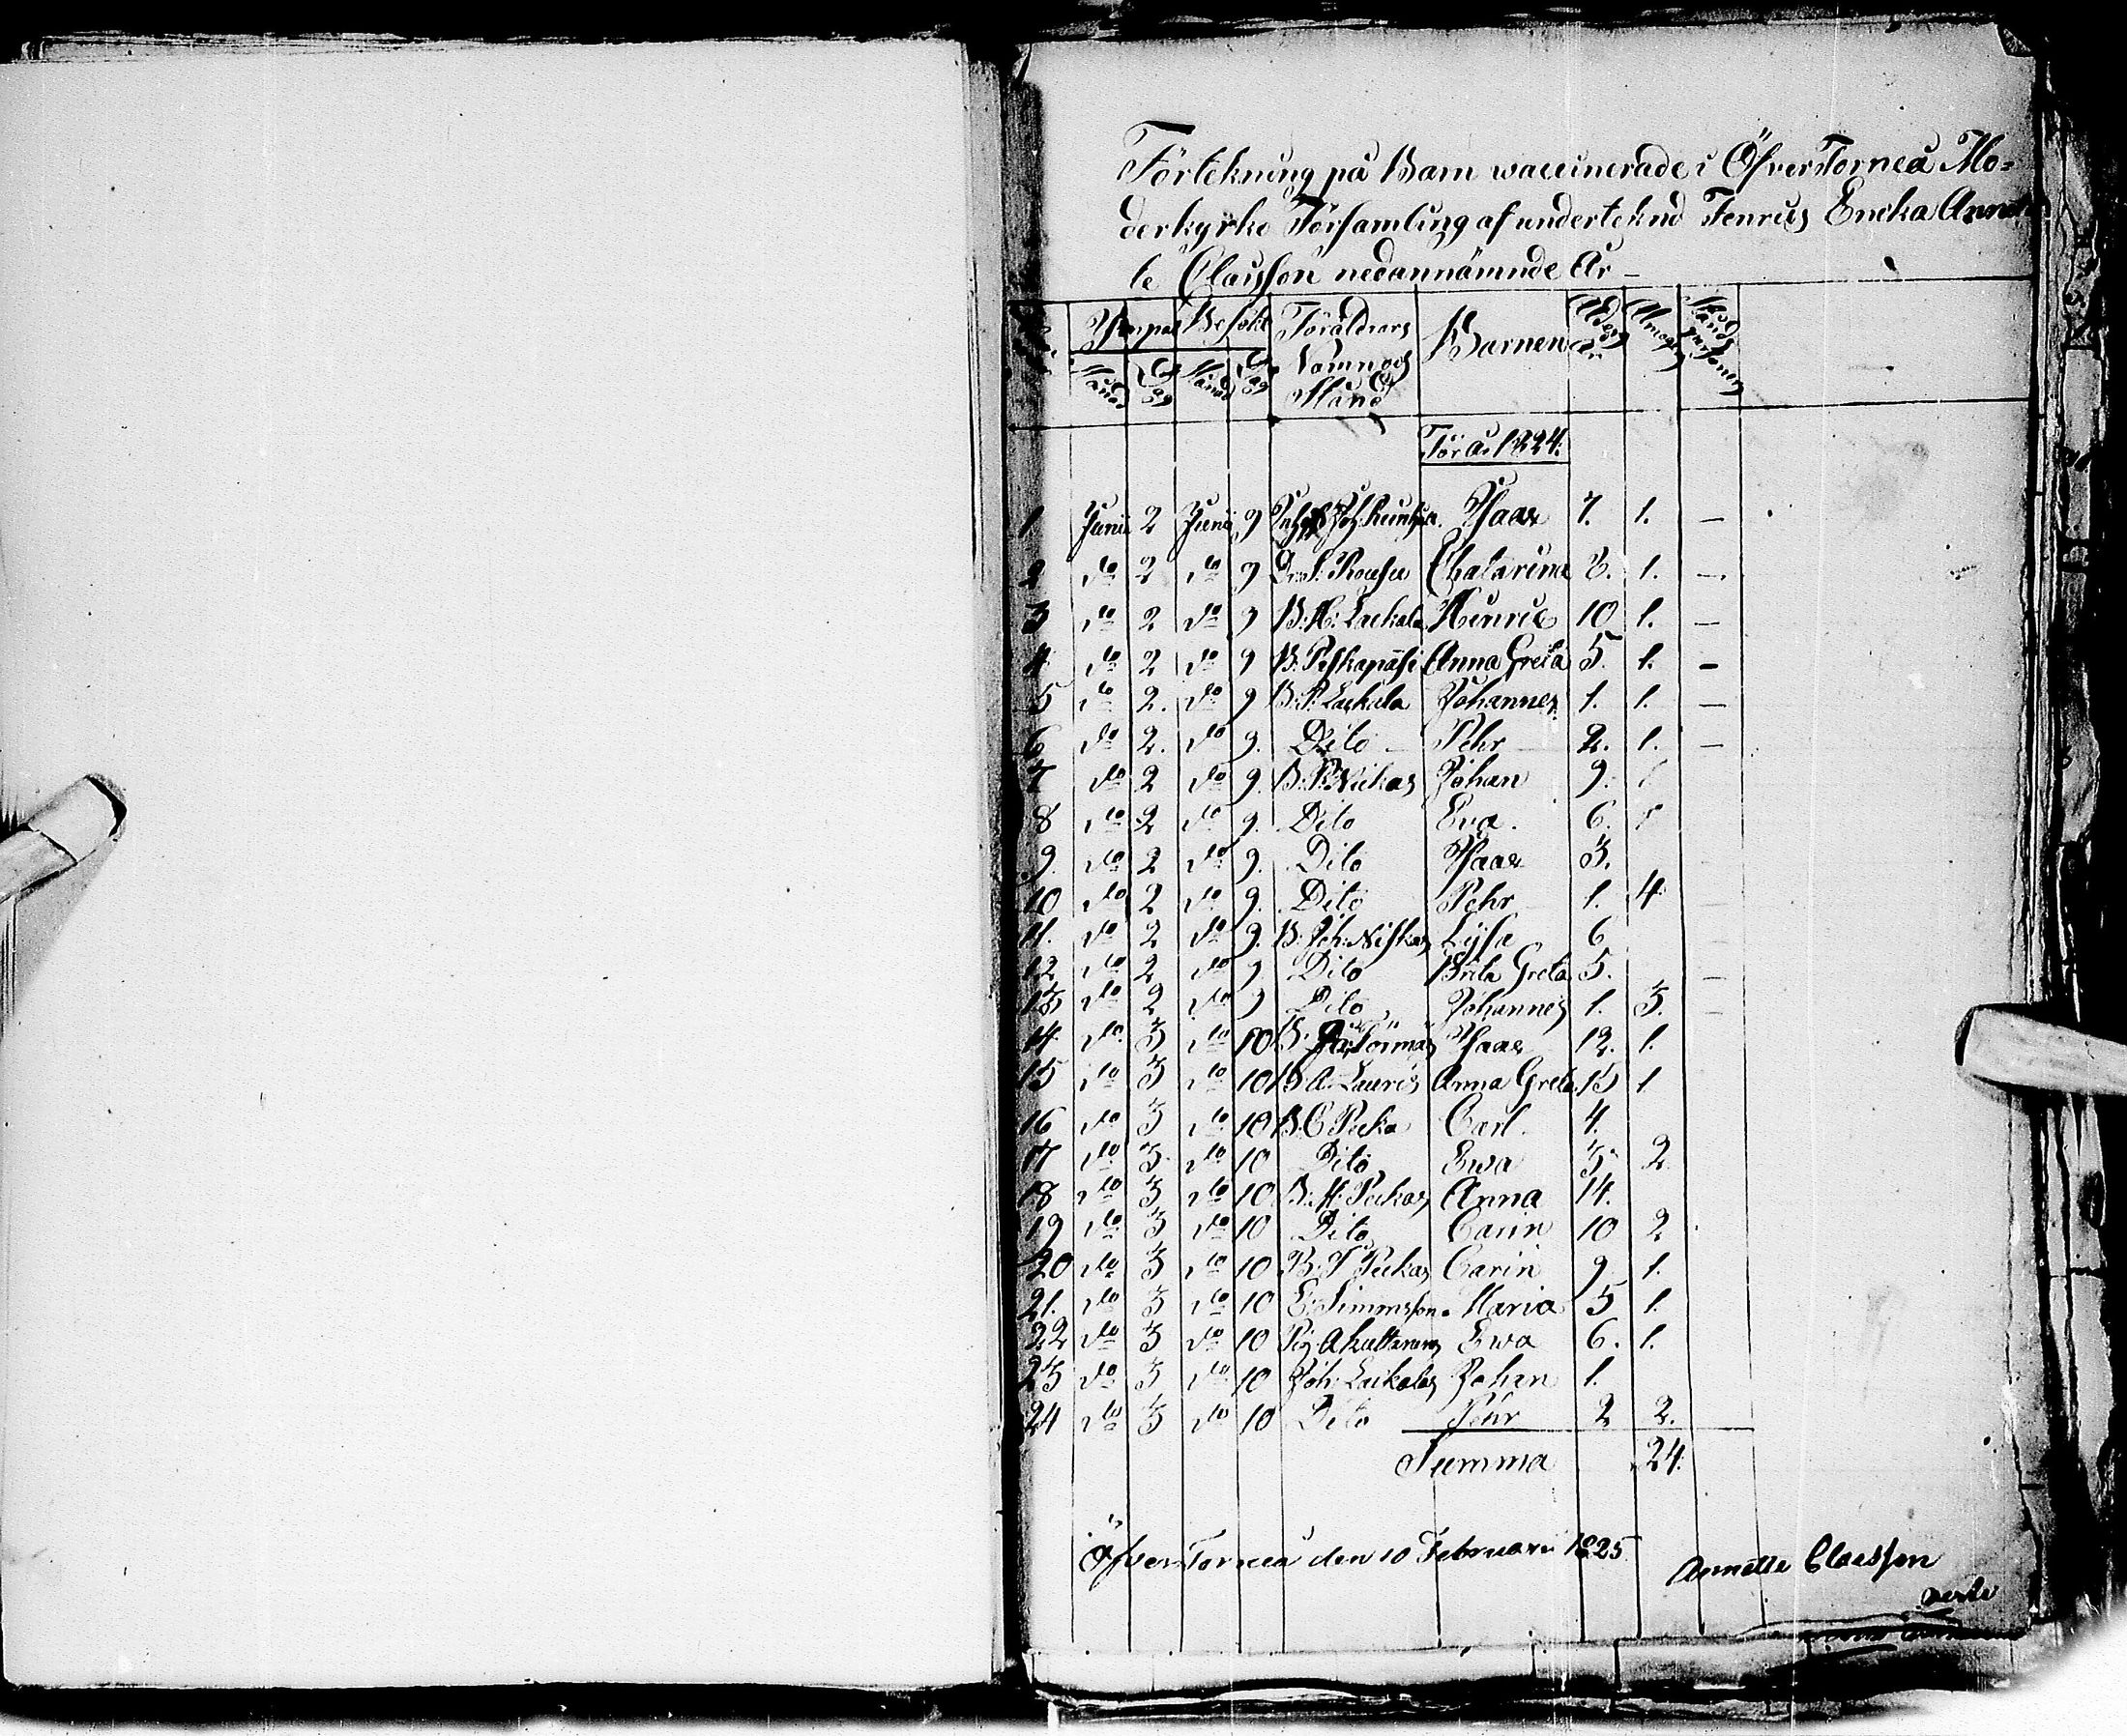 Förtekning på Barn waccinerade i ÖfverTorneå Mo=
derkyrko Församling af underteknad Fenrus Encka Annet
te Claesson nedannämnde År –
Ympad Besökt Föräldrars Namn och Stånd Barnen Ålder År Almoge Stånds personer
Månad Dag Månad Dag
För År 1824.
1 Junii 2 Junii 9 Isaac 7. 1. –
2 do 2 do 9 Chatarina 8. 1. –
3 do 2 do 9 B: H: Laukala Henric 10 1. –
4 do 2 do 9 B: Anna Greta 5. 1. –
5 do 2. do 9 B: P: Laukala Johannes 1. 1. –
6 do 2. do 9. Dito – Pehr 2. 1. –
7 do 2 do 9. B: P: Niskas Johan 9.
8 do 2 do 9. Dito Eva. 6.
9. do 2 do 9. Dito Isaac 3.
10 do 2 do 9. Dito Pehr 1. 4
11. do 2 do 9. B: Joh: Niskas Lisa 6
12 do 2 do 9 Dito Brita Greta 5. –
13 do 2 do 9 Dito Johannes 1. 3. –
14 do 3 do 10 B. Törmäs Isaac 12. 1.
15 do 3 do 10 B A. Lauris Anna Greta 13 1
16 do 3 do 10 B. C Pecka Carl 4.
17 do 3 do 10 Dito Ewa 3 2
18 do 3 do 10 B: H: Peckas Anna 14.
19 do 3 do 10 Dito Carin 10 2
20 do 3 do 10 B: Peckas Carin 9 1.
21. do 3 do 10 E: Simmsson Maria 5 1.
22 do 3 do 10 Pig: A Ewa 6. 1.
23 do 3 do 10 Joh: Laukalas Johan 1.
24 do 3 do 10 Dito Pehr 2 2.
Summa 24.
ÖfverTorneå den 10 Februari 1825.
Annette Claesson